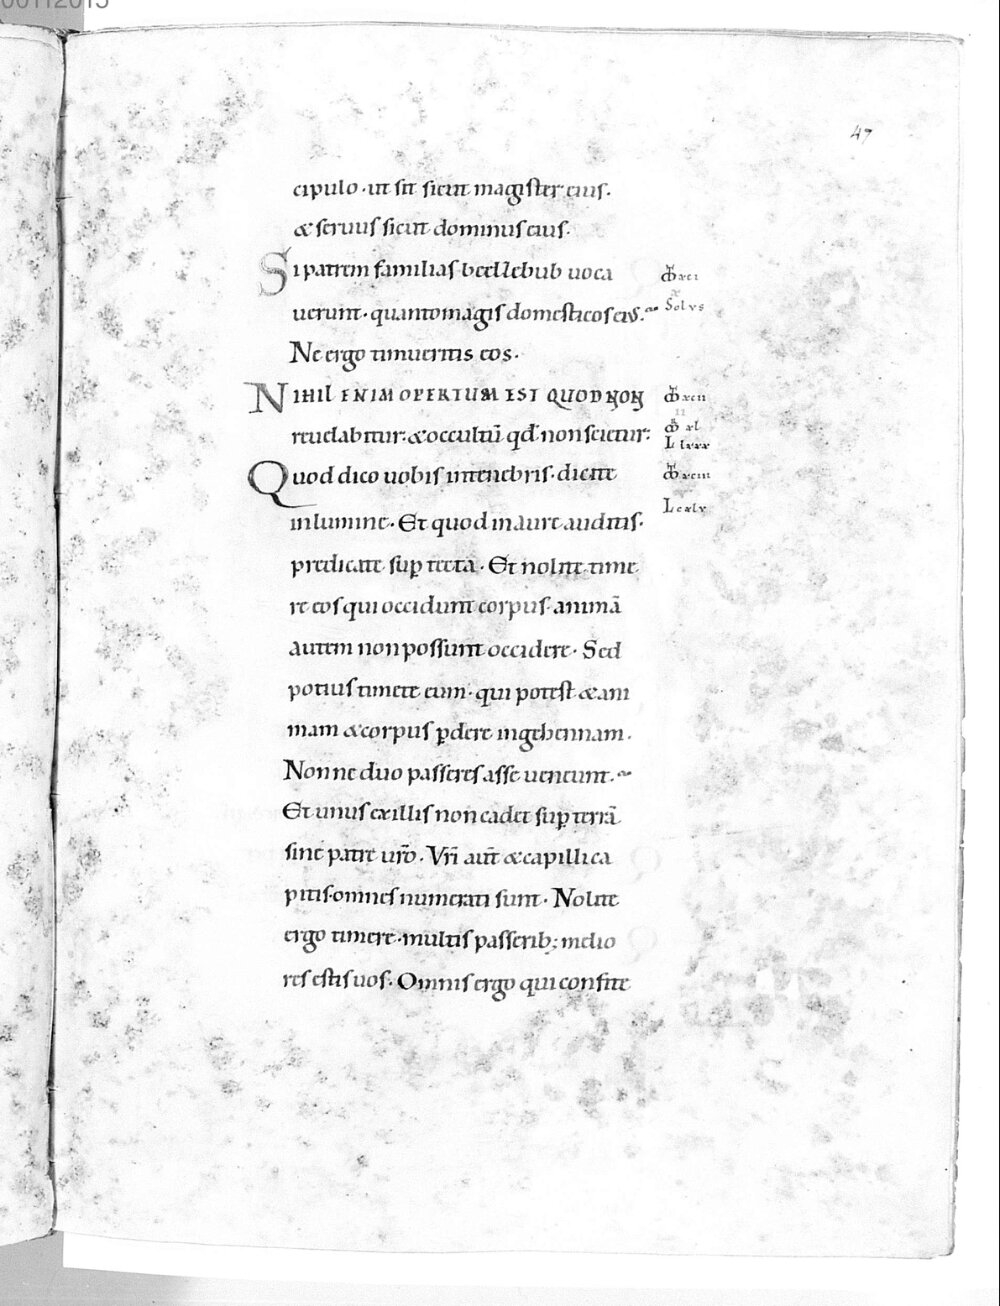 47
cipulo · ut sit sicut magister eius.
& seruus sicut dominus eius.
Si patrem familias beelzebub uoca
uerunt · quanto magis domesticos eius.
Ne ergo timueritis eos ·
NIHIL ENIM OPERTUM EST QUOD NON
reuelabitur: & occultū qđ non scietur:
Quod dico uobis in tenebris · dicite
in lumine · Et quod in aure auditis ·
predicate sup tecta · Et nolite time
re eos qui occidunt corpus · animā
autem non possunt occidere · Sed
potius timete eum · qui potest & ani
mam & corpus pdere in gehennam ·
Nonne duo passeres asse ueneunt ·
Et unus ex illis non cadet sup terrā
sine patre uro · Vri aut & capilli ca
pitis · omnes numerati sunt · Nolite
ergo timere · multis passerib; melio
res estis uos · Omnis ergo qui confite
xci
Solus
xcii
xl
L lxxx
xciii
L cxlv